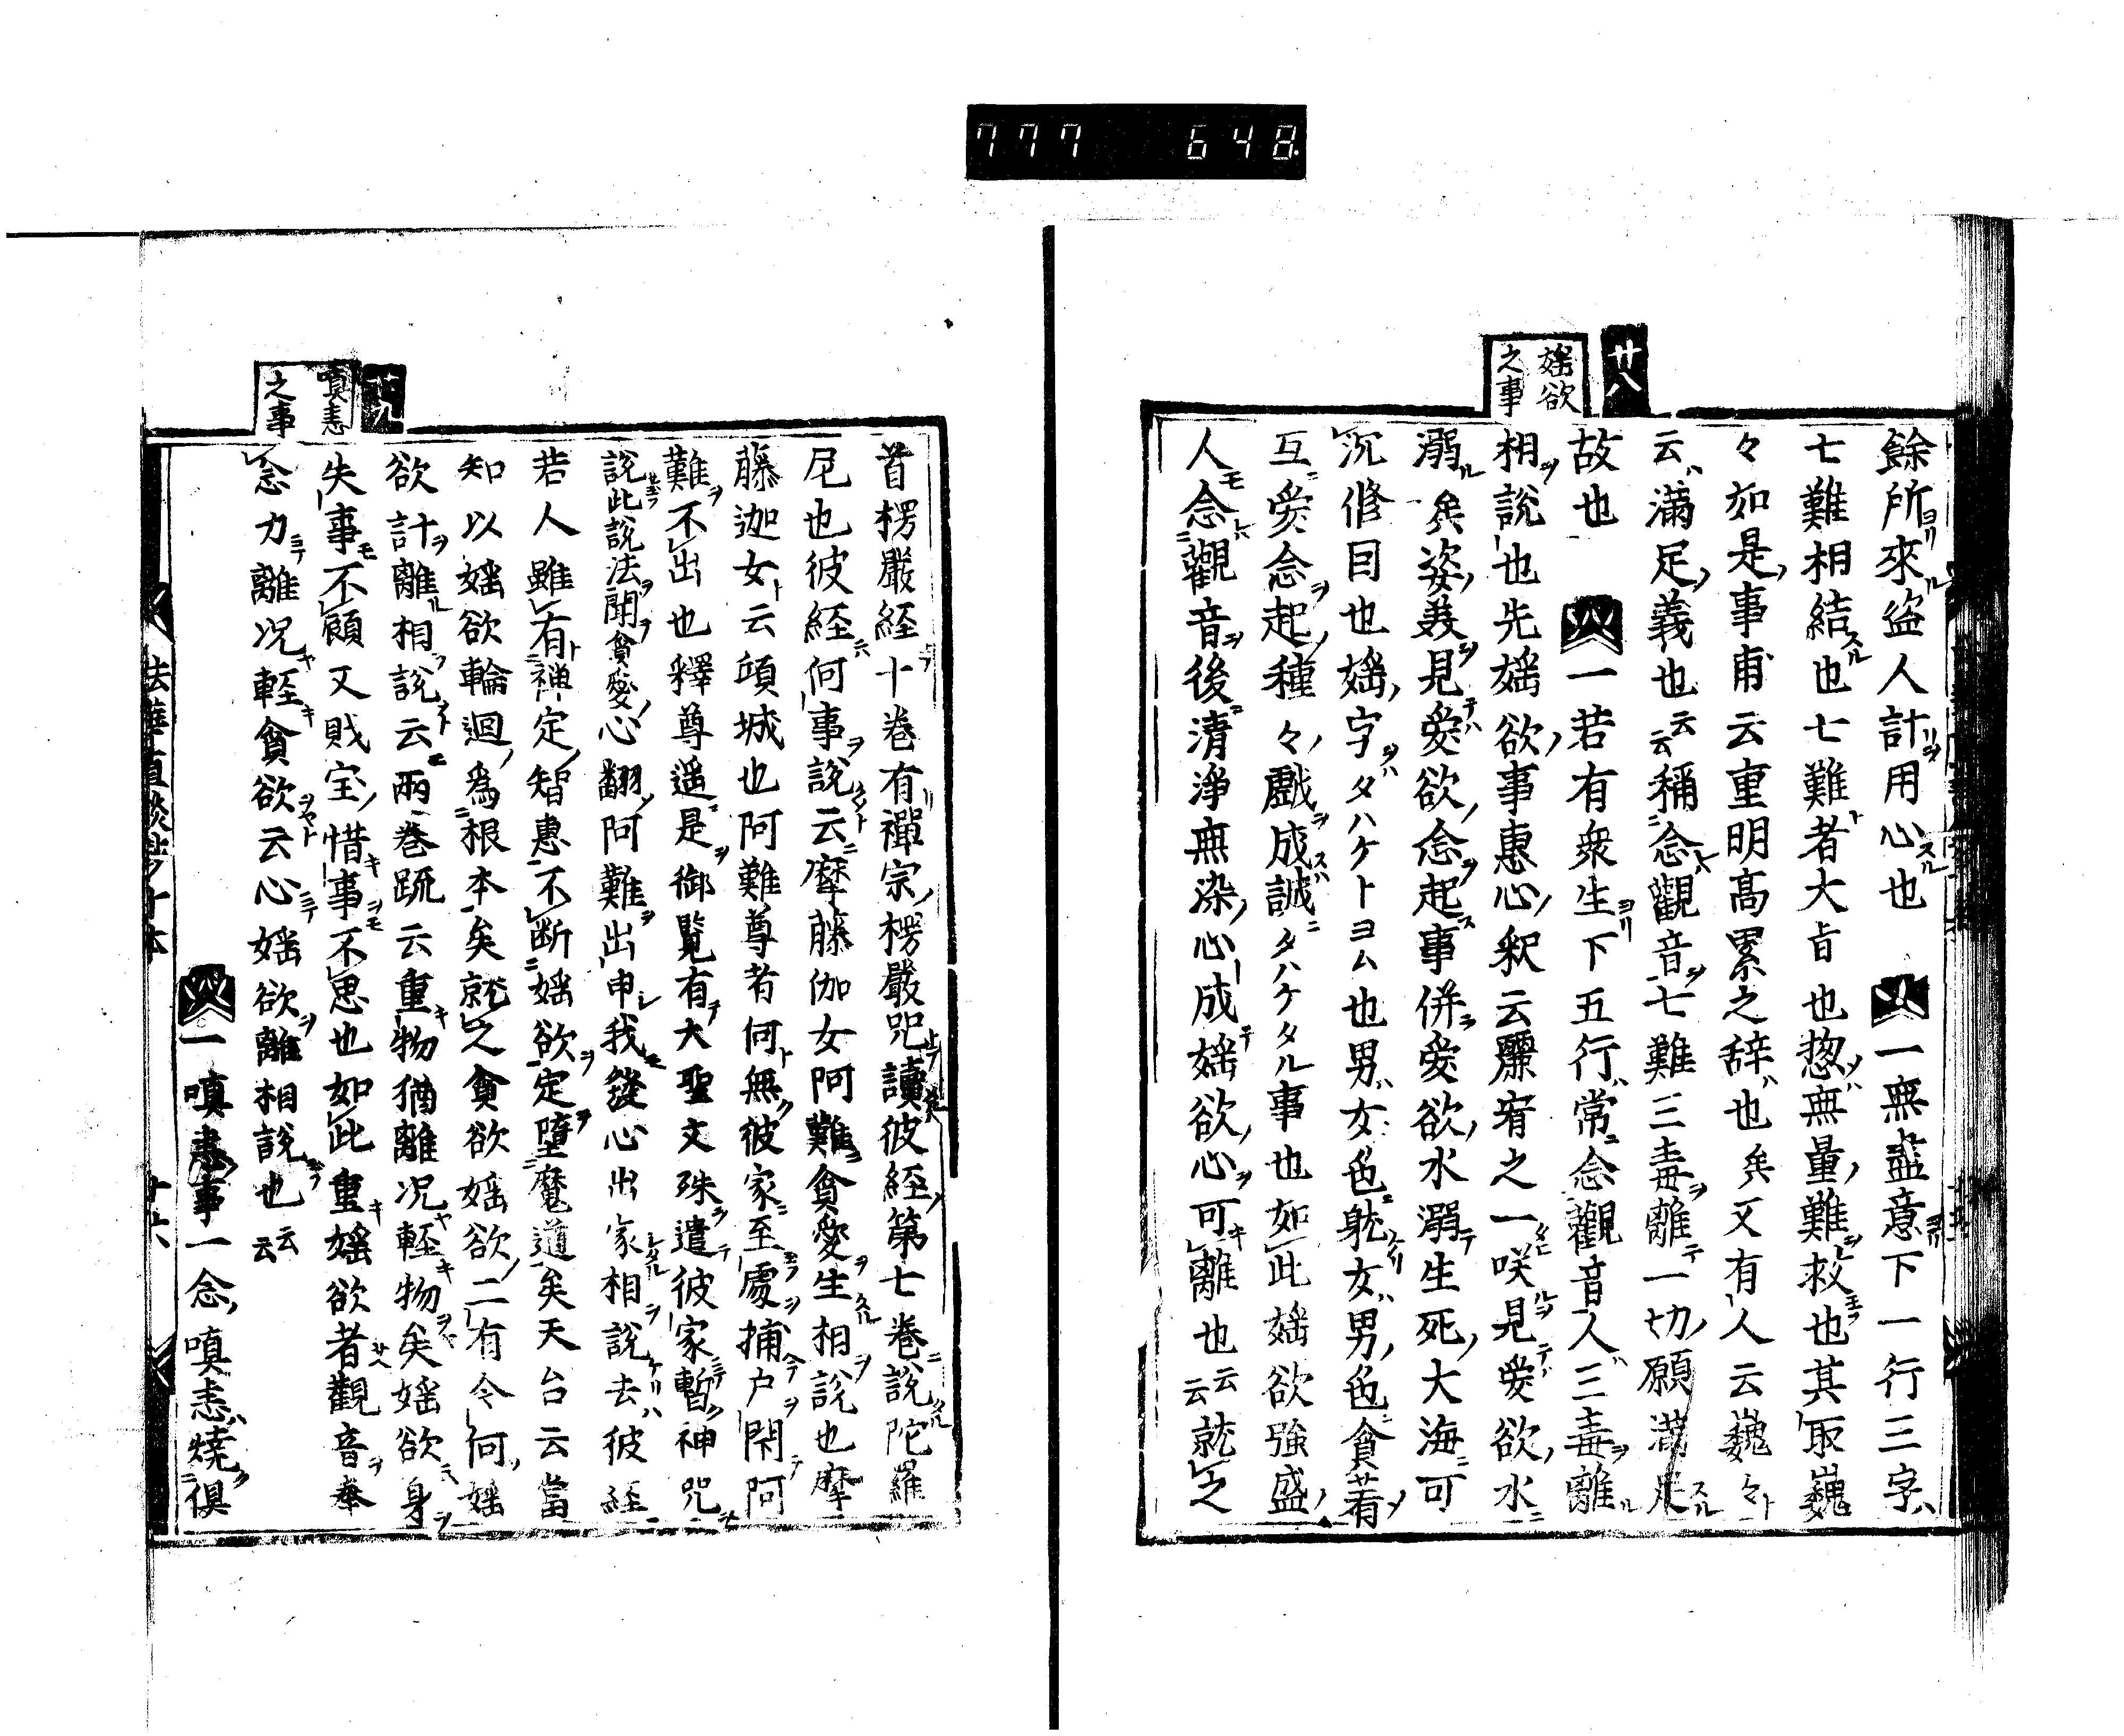 777 648
廿八
婬欲
之事
餘所來盗人計用心也 一無盡意下一行三字
七難相結也七難者大㫖也惣無量難救也其取巍
々如是事甫云重明髙累之辞也矣又有人云巍々
云満足義也云云稱念觀音七難三毒離一切願満足
故也 一若有衆生下五行常念觀音人三毒離
相說也先婬欲事惠心釈云靨宥之一咲見愛欲水
溺矣姿美見愛欲念起事併愛欲水溺生死大海可
沉俢目也婬字タハケトヨム也男女色躭女男色貪著
互愛念起種々戲成誠タハケタル事也如此婬欲強盛
人念觀音後清淨無染心成婬欲心可離也云云就之
首楞嚴経十巻有禪宗楞嚴咒讀彼経第七巻說陀羅
尼也彼経何事說云摩藤伽女阿難貪愛生相說也摩
藤迦女云頭城也阿難尊者何無彼家至處捕户閇阿
難不出也釋尊遥是御覧有大聖文殊遣彼家暫神咒
說此說法聞貪愛心翻阿難出申我發心出家相說去彼経
若人雖有禅定智恵不断婬欲定墮魔道矣天台云當
知以婬欲輪迴為根本矣就之貪欲婬欲二有令何婬
欲計離相說云兩巻疏云重物猶離况輊物矣婬欲身
失事不顧又賎宝惜事不思也如此重婬欲者觀音奉
念力離况輊貪欲云心婬欲離相說也云云
一嗔恚事一念嗔恚燒俱
廿九
嗔恚
之事
法華直談鈔十本 十六